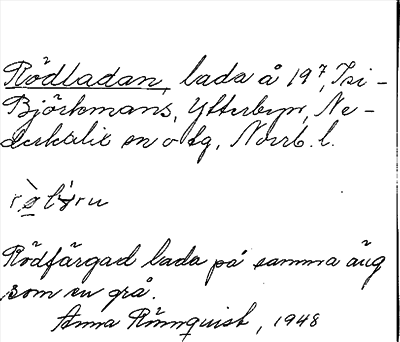 Rödladan, lada å 19⁷, Isi-
Björkmans, Ytterbyn, Ne-
derkalix sn o tg, Norrb. l.
Rödfärgad lada på samma äng
som en grå.
Anna Rönnquist, 1948